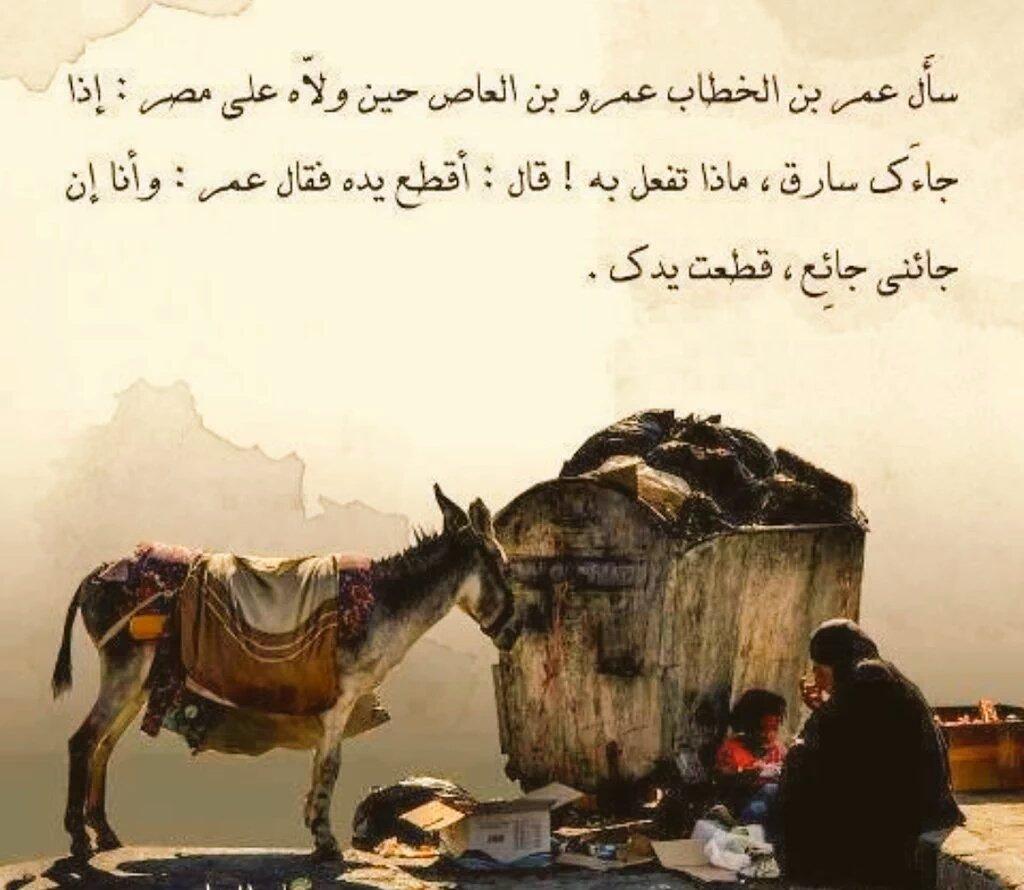 سأَل عمر بن الخطاب عمرو بن العاص حين ولاّه على مصر : إذا
جاءَك سارق ، ماذا تفعل به ! قال : أقطع يده فقال عمر : وأنا إن
جائنى جائِع ، قطعت يدك .